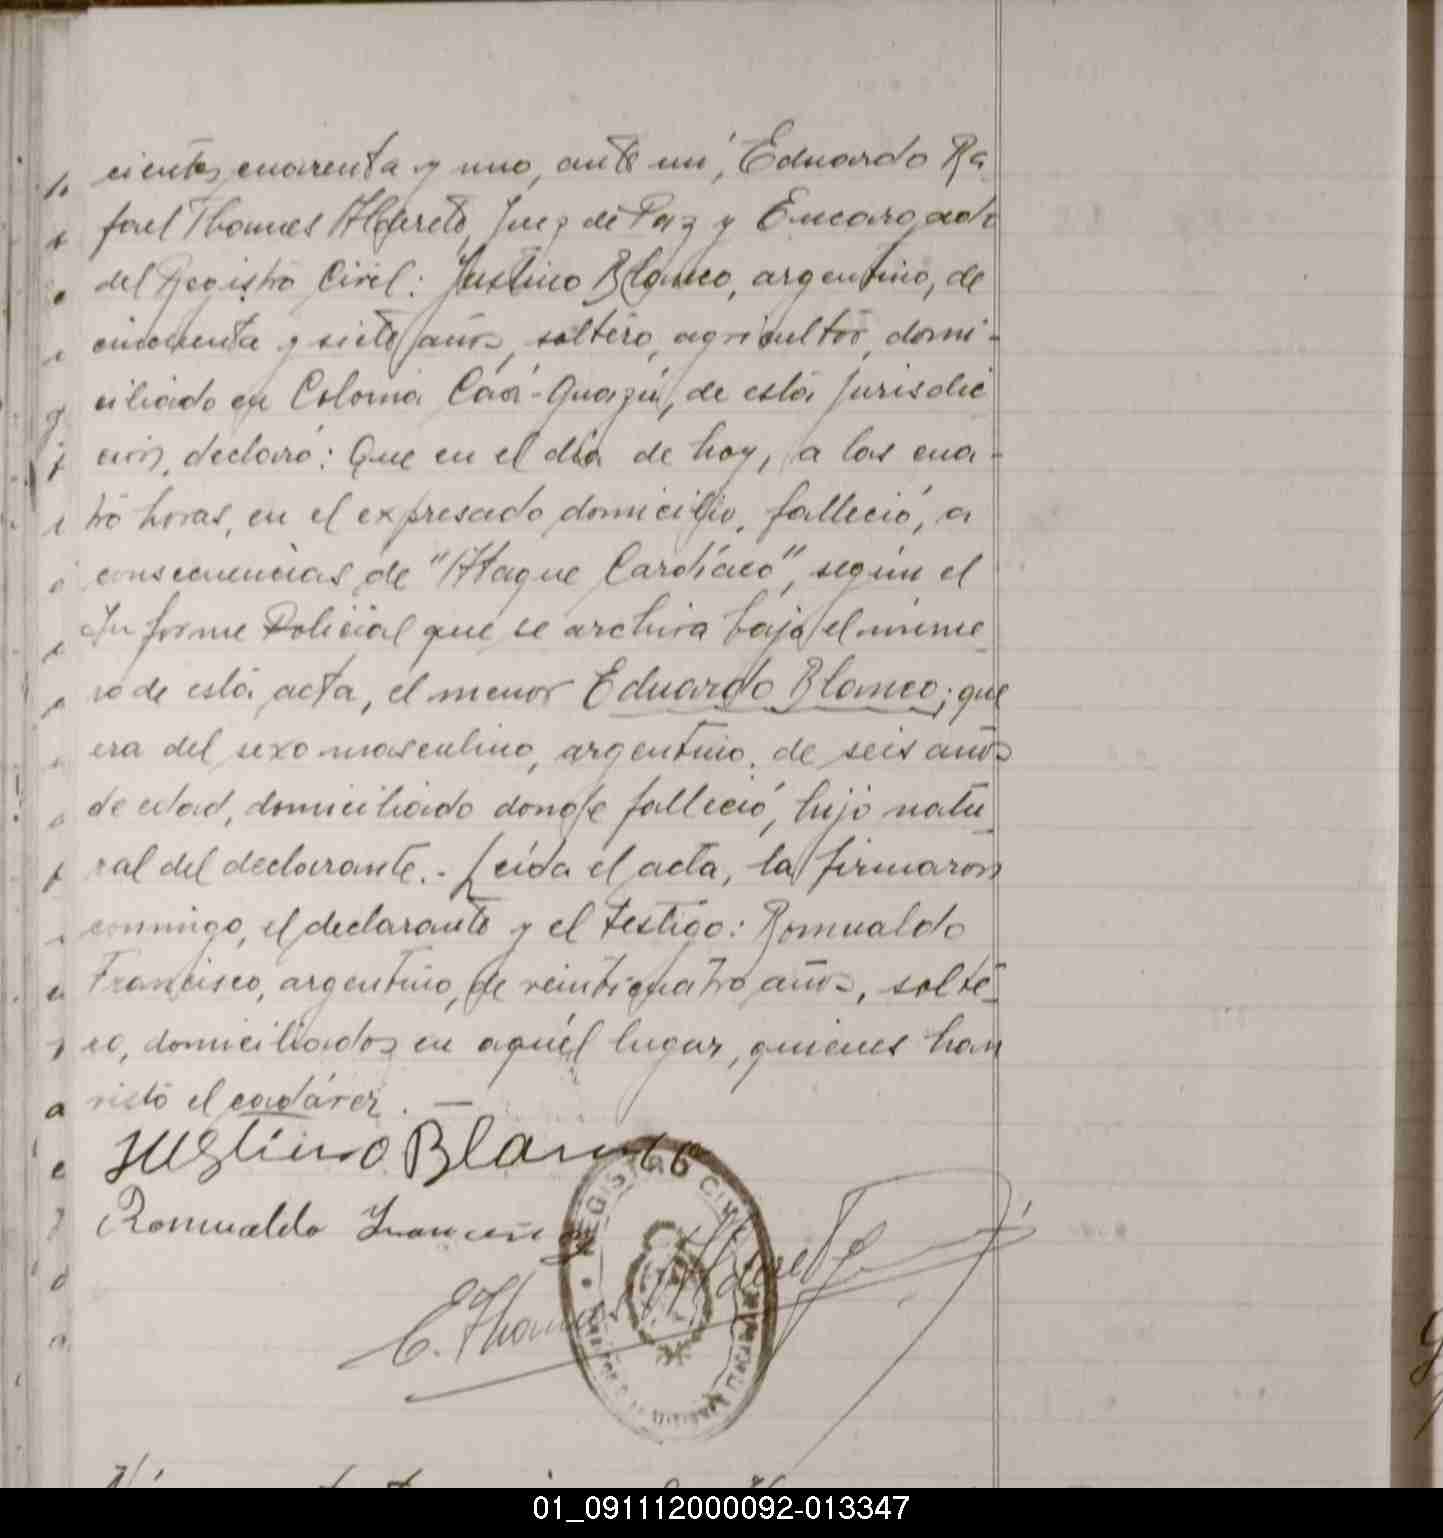 cientos cuarenta y uno, ante mí, Eduardo Ra
fael Thomes Alderete, Juez de Paz y Encargado
del Registro Civil: Justino Blanco, argentino, de
cincuenta y siete años, soltero, agricultor, domi-
ciliado en Colonia Cáa-Guazú, de esta jurisdic
ción, declaró: Que en el día de hoy, a las cua-
tro horas, en el expresado domicilio, falleció, a
consecuencias de "Ataque Cardíaco", según el
Informe Policial que se archiva bajo el núme
ro de esta acta, el menor Eduardo Blanco; que
era del sexo masculino, argentino, de seis años
de edad, domiciliado donde falleció, hijo natu
ral del declarante.- Leída el acta, la firmaron
conmigo, el declarante y el testigo: Romualdo
Francisco, argentino, de veinticuatro años, solte-
ro, domiciliados en aquél lugar, quienes han
visto el cadáver. —
Justino Blanco
Romualdo Francisco
E. Thomes Alderete
REGISTRO CIVIL
01_091112000092-013347